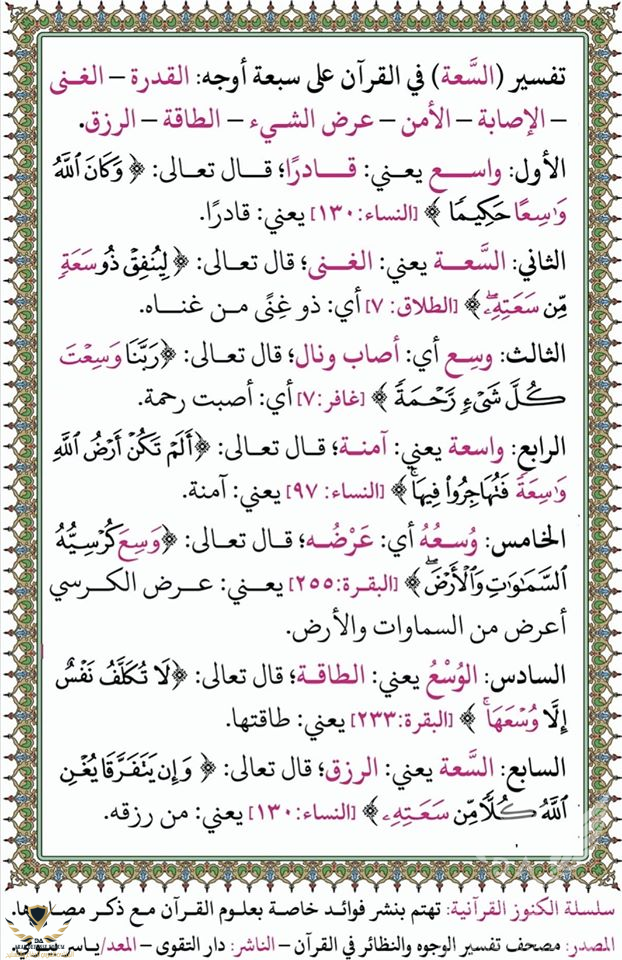 تفسير (السَّعة) في القرآن على سبعة أوجه: القدرة – الغنى
– الإصابة – الأمن – عرض الشيء – الطاقة – الرزق.
الأول: واسع يعني: قادرًا؛ قال تعالى: ﴿ وَكَانَ ٱللَّهُ
وَٰسِعًا حَكِيمٗا ﴾ [النساء:١٣٠] يعني: قادرًا.
الثاني: السَّعة يعني: الغنى؛ قال تعالى: ﴿ لِيُنفِقۡ ذُو سَعَةٖ
مِّن سَعَتِهِۦۖ ﴾ [الطلاق: ٧] أي: ذو غِنًى من غناه.
الثالث: وسِع أي: أصاب ونال؛ قال تعالى: ﴿رَبَّنَا وَسِعۡتَ
كُلَّ شَيۡءٖ رَّحۡمَةٗ ﴾ [غافر:٧] أي: أصبت رحمة.
الرابع: واسعة يعني: آمنة؛ قال تعالى: ﴿أَلَمۡ تَكُنۡ أَرۡضُ ٱللَّهِ
وَٰسِعَةٗ فَتُهَاجِرُواْ فِيهَاۚ ﴾ [النساء: ٩٧] يعني: آمنة.
الخامس: وُسعُهُ أي: عَرْضُه؛ قال تعالى: ﴿وَسِعَ كُرۡسِيُّهُ
ٱلسَّمَٰوَٰتِ وَٱلۡأَرۡضَۖ ﴾ [البقرة:٢٥٥] يعني: عرض الكرسي
أعرض من السماوات والأرض.
السادس: الوُسْعُ يعني: الطاقة؛ قال تعالى: ﴿لَا تُكَلَّفُ نَفۡسٌ
إِلَّا وُسۡعَهَاۚ ﴾ [البقرة:٢٣٣] يعني: طاقتها.
السابع: السَّعة يعني: الرزق؛ قال تعالى: ﴿ وَإِن يَتَفَرَّقَا يُغۡنِ
ٱللَّهُ كُلّٗا مِّن سَعَتِهِۦ ﴾ [النساء:١٣٠] يعني: من رزقه.
سلسلة الكنوز القرآنية: تهتم بنشر فوائد خاصة بعلوم القرآن مع ذكر مصادرها.
المصدر: مصحف تفسير الوجوه والنظائر في القرآن – الناشر: دار التقوى – المعد/ياسر